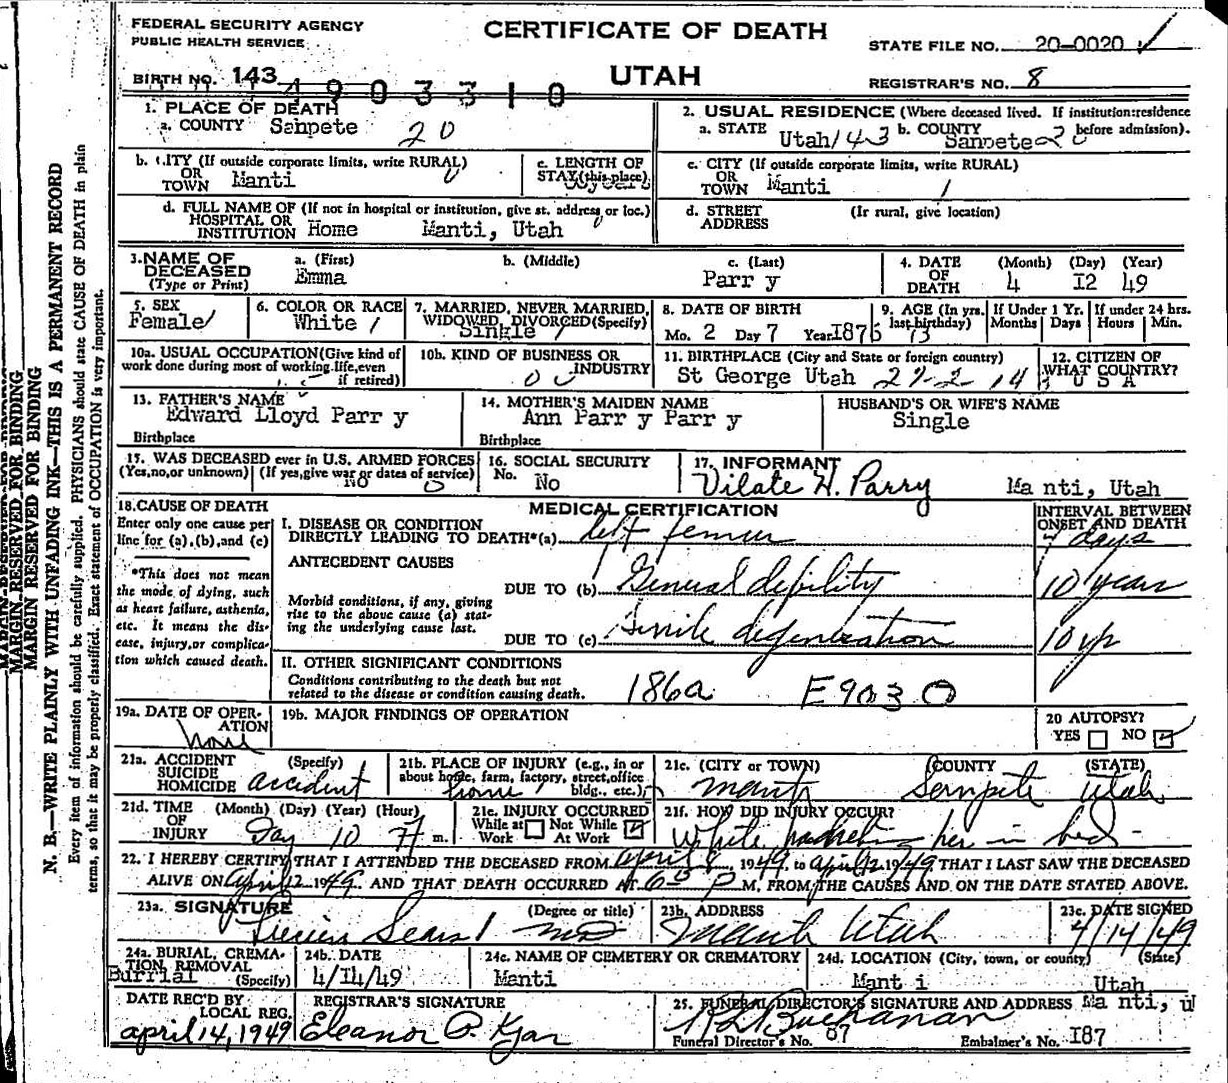 FEDERAL SECURITY AGENCY
PUBLIC HEALTH SERVICE
CERTIFICATE OF DEATH
STATE FILE NO. 20-0020
BIRTH NO. 143
4903310
UTAH
REGISTRAR'S NO. 8
1. PLACE OF DEATH
a. COUNTY Sanpete 20
2. USUAL RESIDENCE (Where deceased lived. If institution:residence
a. STATE Utah 143 b. COUNTY Sanpete 20 before admission).
b. CITY (If outside corporate limits, write RURAL)
OR
TOWN Manti
c. LENGTH OF
STAY (this place)
c. CITY (If outside corporate limits, write RURAL)
OR
TOWN Manti 1
d. FULL NAME OF (If not in hospital or institution, give st. address or loc.)
HOSPITAL OR
INSTITUTION Home Manti, Utah
d. STREET (If rural, give location)
ADDRESS
3. NAME OF
DECEASED
(Type or Print)
a. (First) Emma
b. (Middle)
c. (Last) Parr y
4. DATE (Month) (Day) (Year)
OF
DEATH 4 I2 49
5. SEX
Female
6. COLOR OR RACE
White
7. MARRIED, NEVER MARRIED,
WIDOWED, DIVORCED (Specify)
Single
8. DATE OF BIRTH
Mo. 2 Day 7 Year
9. AGE (In yrs. last birthday) 73
If Under 1 Yr. If under 24 hrs.
Months Days Hours Min.
10a. USUAL OCCUPATION (Give kind of
work done during most of working life, even
if retired)
10b. KIND OF BUSINESS OR
INDUSTRY
11. BIRTHPLACE (City and State or foreign country)
St George Utah
12. CITIZEN OF
WHAT COUNTRY?
U S A
13. FATHER'S NAME
Edward Lloyd Parr y
Birthplace
14. MOTHER'S MAIDEN NAME
Ann Parr y Parr y
Birthplace
HUSBAND'S OR WIFE'S NAME
Single
15. WAS DECEASED ever in U.S. ARMED FORCES
(Yes,no,or unknown) (If yes,give war or dates of service)
No
16. SOCIAL SECURITY
No. No
17. INFORMANT
Vilate H. Parry Ma nti, Utah
18. CAUSE OF DEATH
Enter only one cause per
line for (a),(b),and (c)
*This does not mean
the mode of dying, such
as heart failure, asthenia,
etc. It means the dis-
ease, injury,or complica-
tion which caused death.
MEDICAL CERTIFICATION
INTERVAL BETWEEN
ONSET AND DEATH
I. DISEASE OR CONDITION
DIRECTLY LEADING TO DEATH*(a) left femur days
ANTECEDENT CAUSES
DUE TO (b) General debility 10 years
Morbid conditions, if any, giving
rise to the above cause (a) stat-
ing the underlying cause last.
DUE TO (c) Senile degeneration 10 yr
II. OTHER SIGNIFICANT CONDITIONS
Conditions contributing to the death but not
related to the disease or condition causing death.
186a E903 0
19a. DATE OF OPER-
ATION
None
19b. MAJOR FINDINGS OF OPERATION
20 AUTOPSY?
YES NO
21a. ACCIDENT (Specify)
SUICIDE
HOMICIDE accident
21b. PLACE OF INJURY (e.g., in or
about home, farm, factory, street,office
bldg., etc.) home
21c. (CITY or TOWN) (COUNTY (STATE)
Manti Sanpete Utah
21d. TIME (Month) (Day) (Year) (Hour)
OF
INJURY m.
21e. INJURY OCCURRED
While at Not While
Work At Work
21f. HOW DID INJURY OCCUR?
her in bed
22. I HEREBY CERTIFY THAT I ATTENDED THE DECEASED FROM April 1949, to April 12 1949 THAT I LAST SAW THE DECEASED
ALIVE ON April 12 1949 AND THAT DEATH OCCURRED AT P M, FROM THE CAUSES AND ON THE DATE STATED ABOVE.
23a. SIGNATURE (Degree or title)
Lucien Sears MD
23b. ADDRESS
Manti Utah
23c. DATE SIGNED
4/14/49
24a. BURIAL, CREMA-
TION, REMOVAL
(Specify)
Burrial
24b. DATE
4/I4/49
24c. NAME OF CEMETERY OR CREMATORY
Manti
24d. LOCATION (City, town, or county) (State)
Mant i Utah
DATE REC'D BY
LOCAL REG.
April 14, 1949
REGISTRAR'S SIGNATURE
Eleanor P. Kjar
25. FUNERAL DIRECTOR'S SIGNATURE AND ADDRESS Ma nti, U
Buchanan
Funeral Director's No. 07 Embalmer's No. I87
MARGIN RESERVED FOR BINDING
MARGIN RESERVED FOR BINDING
N. B.—WRITE PLAINLY WITH UNFADING INK—THIS IS A PERMANENT RECORD
Every item of information should be carefully supplied. PHYSICIANS should state CAUSE OF DEATH in plain
terms, so that it may be properly classified. Exact statement of OCCUPATION is very important.